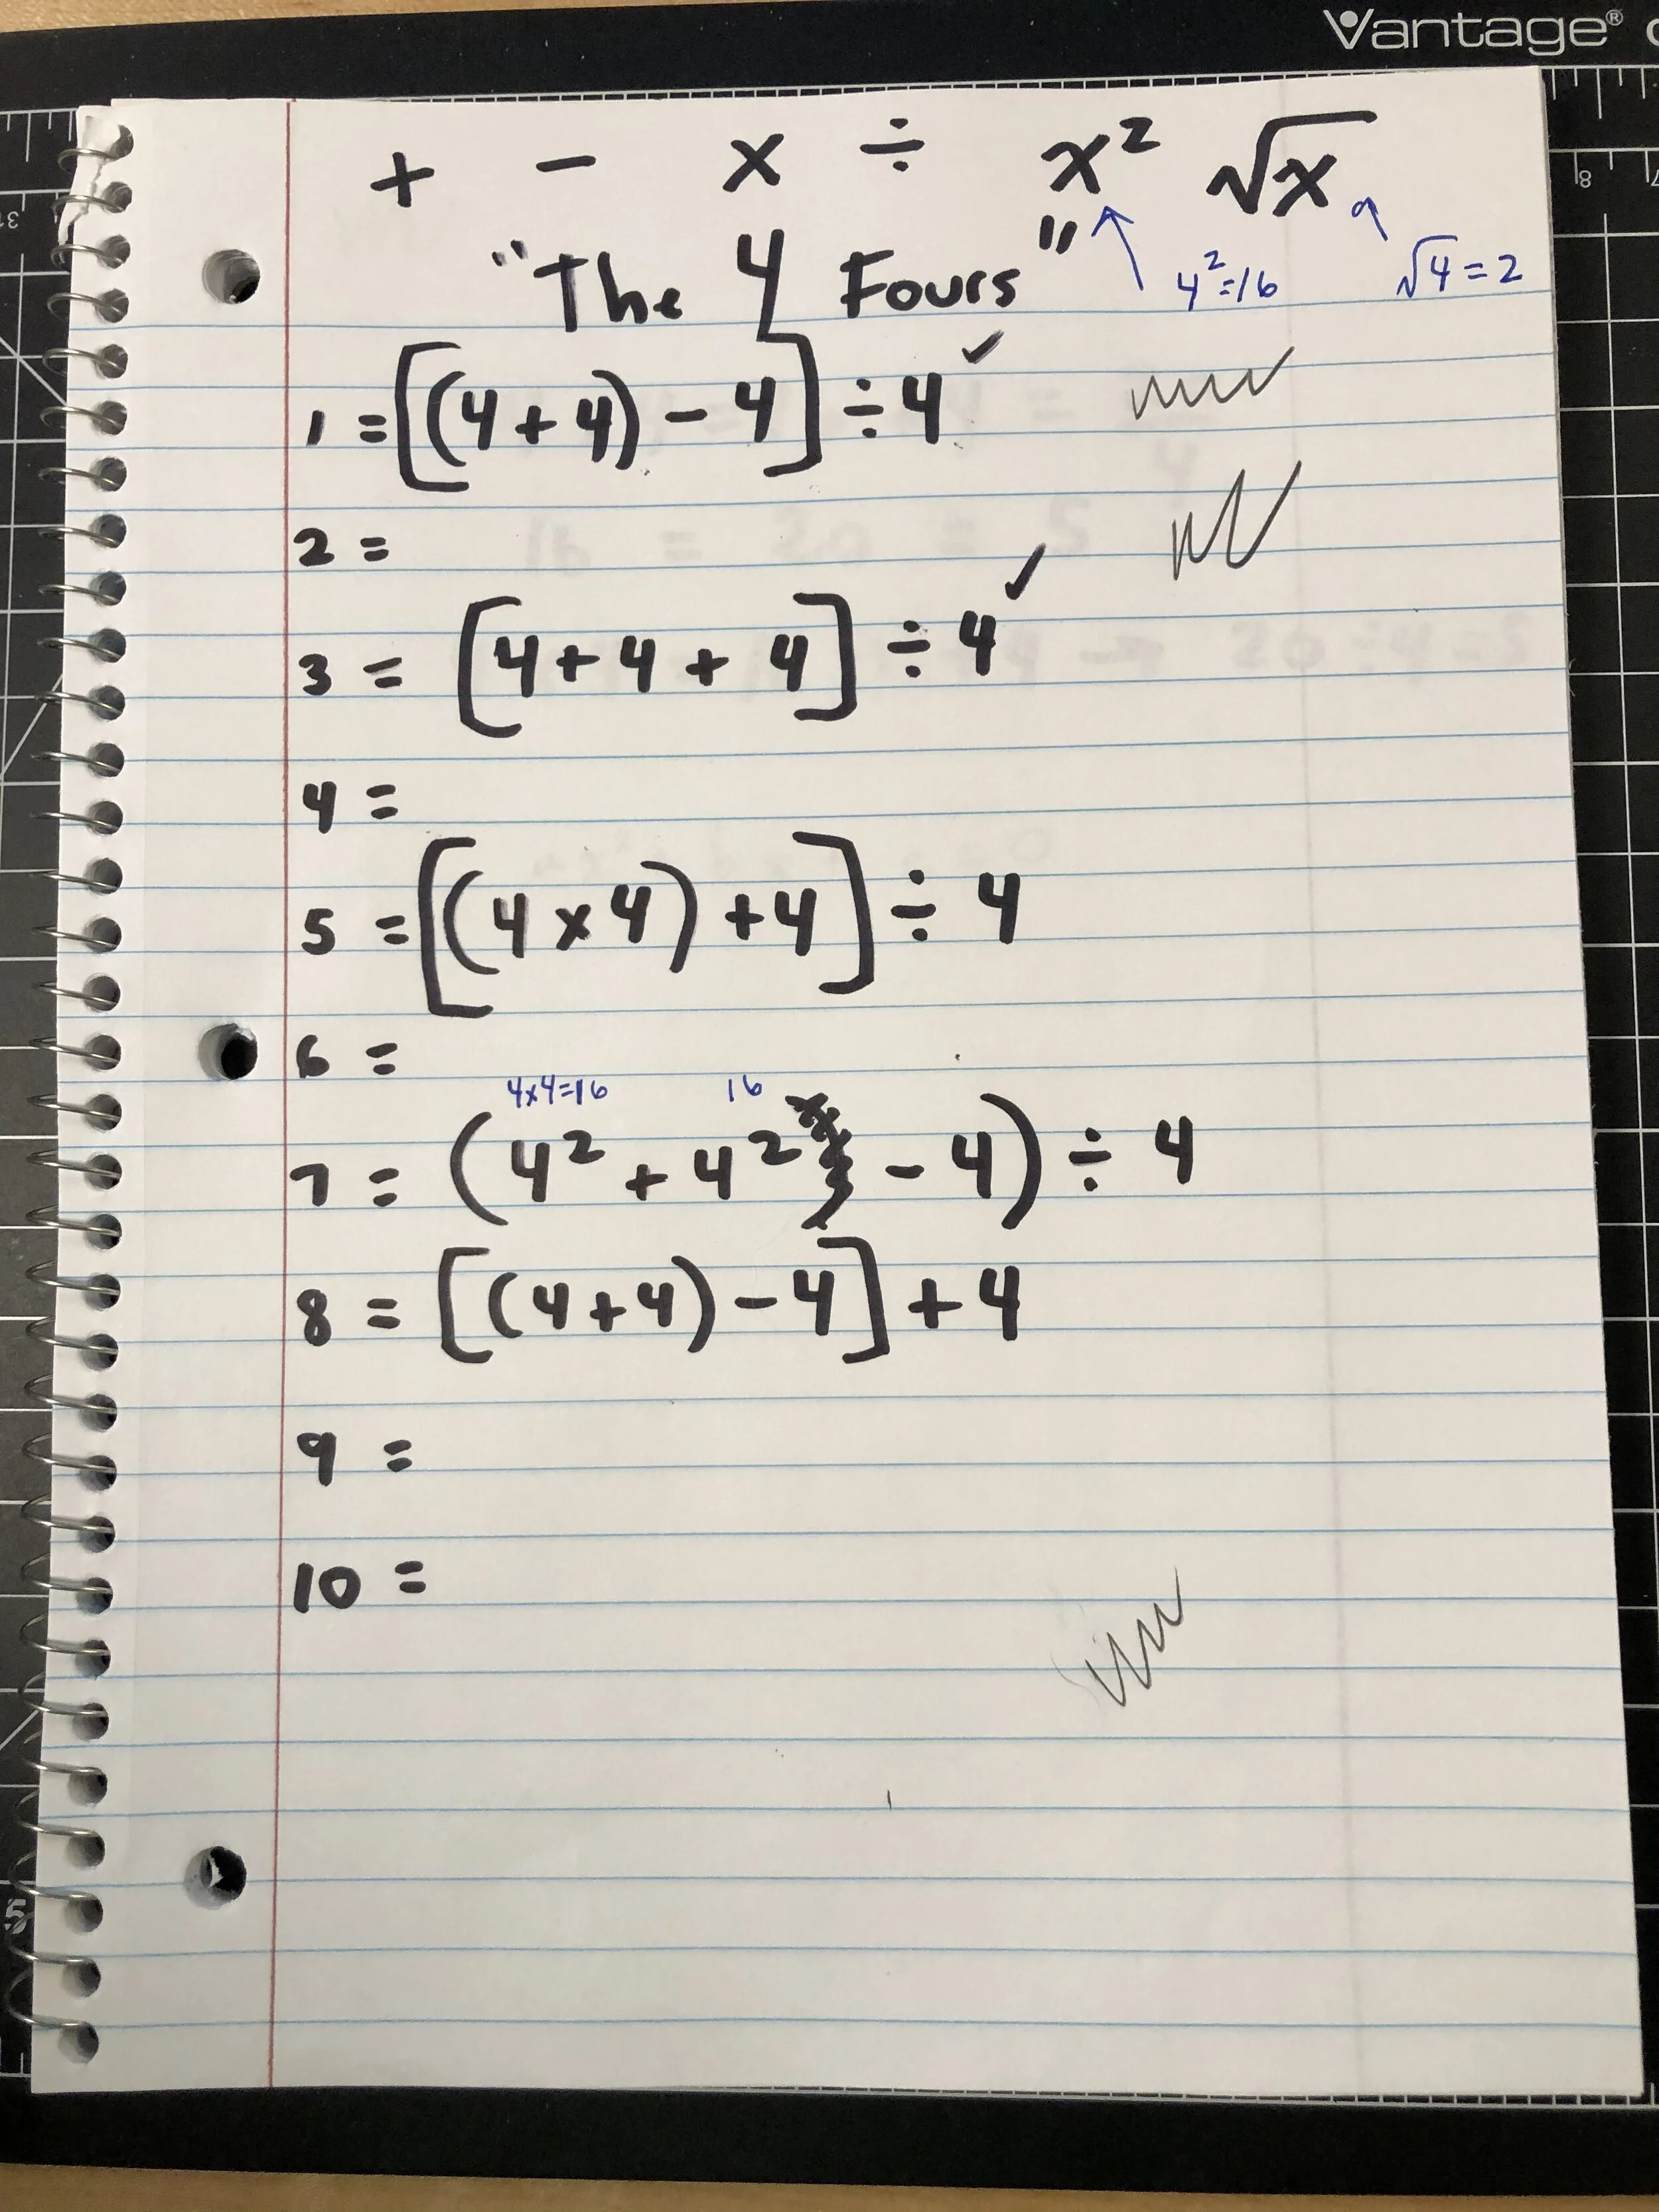 Vantage®
+ - x ÷ x² √x
"The 4 Fours"
4²=16
√4=2
1 = [(4+4)-4] ÷ 4 ✓
2 =
3 = [4+4+4] ÷ 4 ✓
4 =
5 = [(4x4)+4] ÷ 4
6 =
4x4=16 16
7 = (4² + 4² - 4) ÷ 4
8 = [(4+4)-4] + 4
9 =
10 =